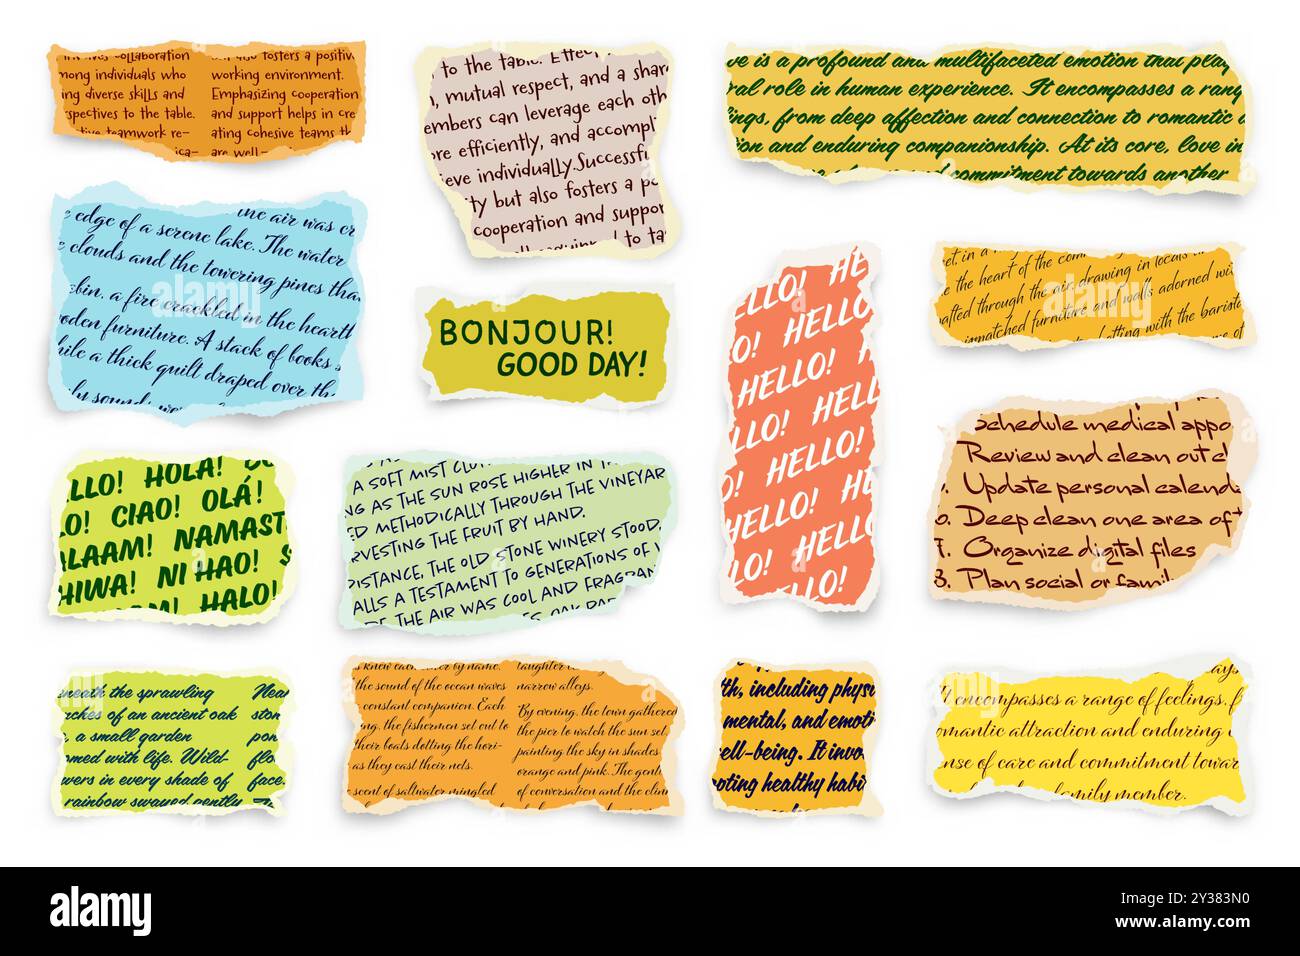 collaboration
among individuals who
ing diverse skills and
spectives to the table.
teamwork re-
ica-
also fosters a positiv
working environment.
Emphasizing cooperation
and support helps in cre
ating cohesive teams th
are well-
to the table. Effec
, mutual respect, and a shar
embers can leverage each oth
ore efficiently, and accompli
ieve individually.Successfu
ty but also fosters a po
cooperation and suppor
to ta
ve is a profound and multifaceted emotion that play
ral role in human experience. It encompasses a rang
ings, from deep affection and connection to romantic a
ion and enduring companionship. At its core, love in
commitment towards another
the air was cr
e edge of a serene lake. The water
e clouds and the towering pines that
bin, a fire crackled in the hearth
oden furniture. A stack of books s
hile a thick quilt draped over th
ly sounds
BONJOUR!
GOOD DAY!
ELLO! HE
O! HELLO
HELLO!
LLO! HELL
HELLO!
O! HE
HELLO!
HELLO
LO!
HELLO!
et, in a
the heart of the com
afted through the air, drawing in locals
inmatched furniture and walls adorned wi
tting with the barista
Schedule medical appo
Review and clean out cl
. Update personal calend
o. Deep clean one area of
7. Organize digital files
8. Plan social or family
LLO! HOLA!
O! CIAO! OLÁ!
ALAAM! NAMAST
HIWA! NI HAO! S
M! HALO!
A SOFT MIST CLU
NG AS THE SUN ROSE HIGHER IN T
ED METHODICALLY THROUGH THE VINEYAR
RVESTING THE FRUIT BY HAND.
DISTANCE, THE OLD STONE WINERY STOOD,
ALLS A TESTAMENT TO GENERATIONS OF
THE AIR WAS COOL AND FRAGRAN
OAK BAR
neath the sprawling
ches of an ancient oak
, a small garden
omed with life. Wild-
wers in every shade of
rainbow swayed gently
Near
ston
pon
flo
face.
s knew each other by name,
the sound of the ocean waves
constant companion. Each
ng, the fishermen set out to
their boats dotting the hori-
as they cast their nets.
scent of saltwater mingled
laughter
narrow alleys.
By evening, the town gathered
the pier to watch the sun set
painting the sky in shades
orange and pink. The gent
of conversation and the clin
th, including physi
mental, and emoti
ell-being. It invo
oting healthy habi
ays
t encompasses a range of feelings, f
omantic attraction and enduring
nse of care and commitment towar
family member.
alamy
alamy
alamy
alamy
alamy
alamy
Image ID: 2Y383N0
www.alamy.com